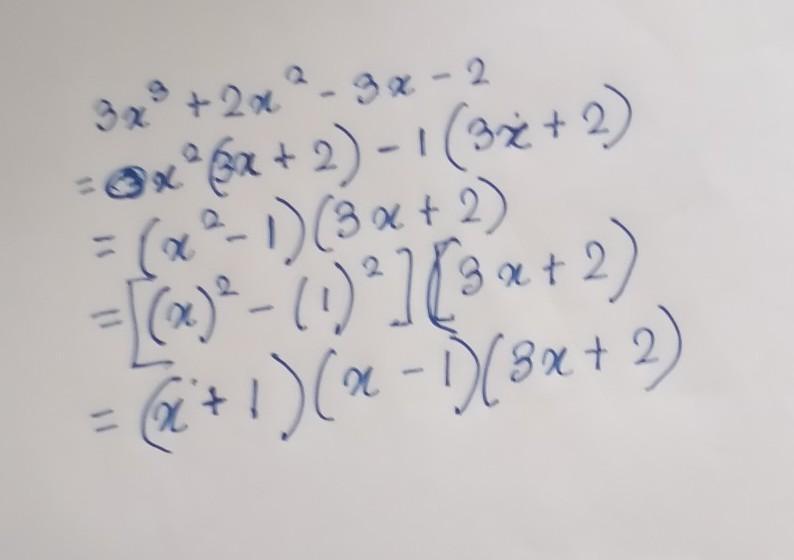 3x³ + 2x² - 3x - 2
= x²(3x + 2) - 1(3x + 2)
= (x² - 1)(3x + 2)
= [(x)² - (1)²][3x + 2)
= (x + 1)(x - 1)(3x + 2)